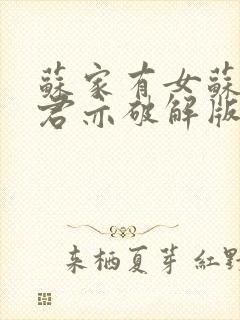 蘇家有女蘇
君亦破解版
来栖夏芽 紅野